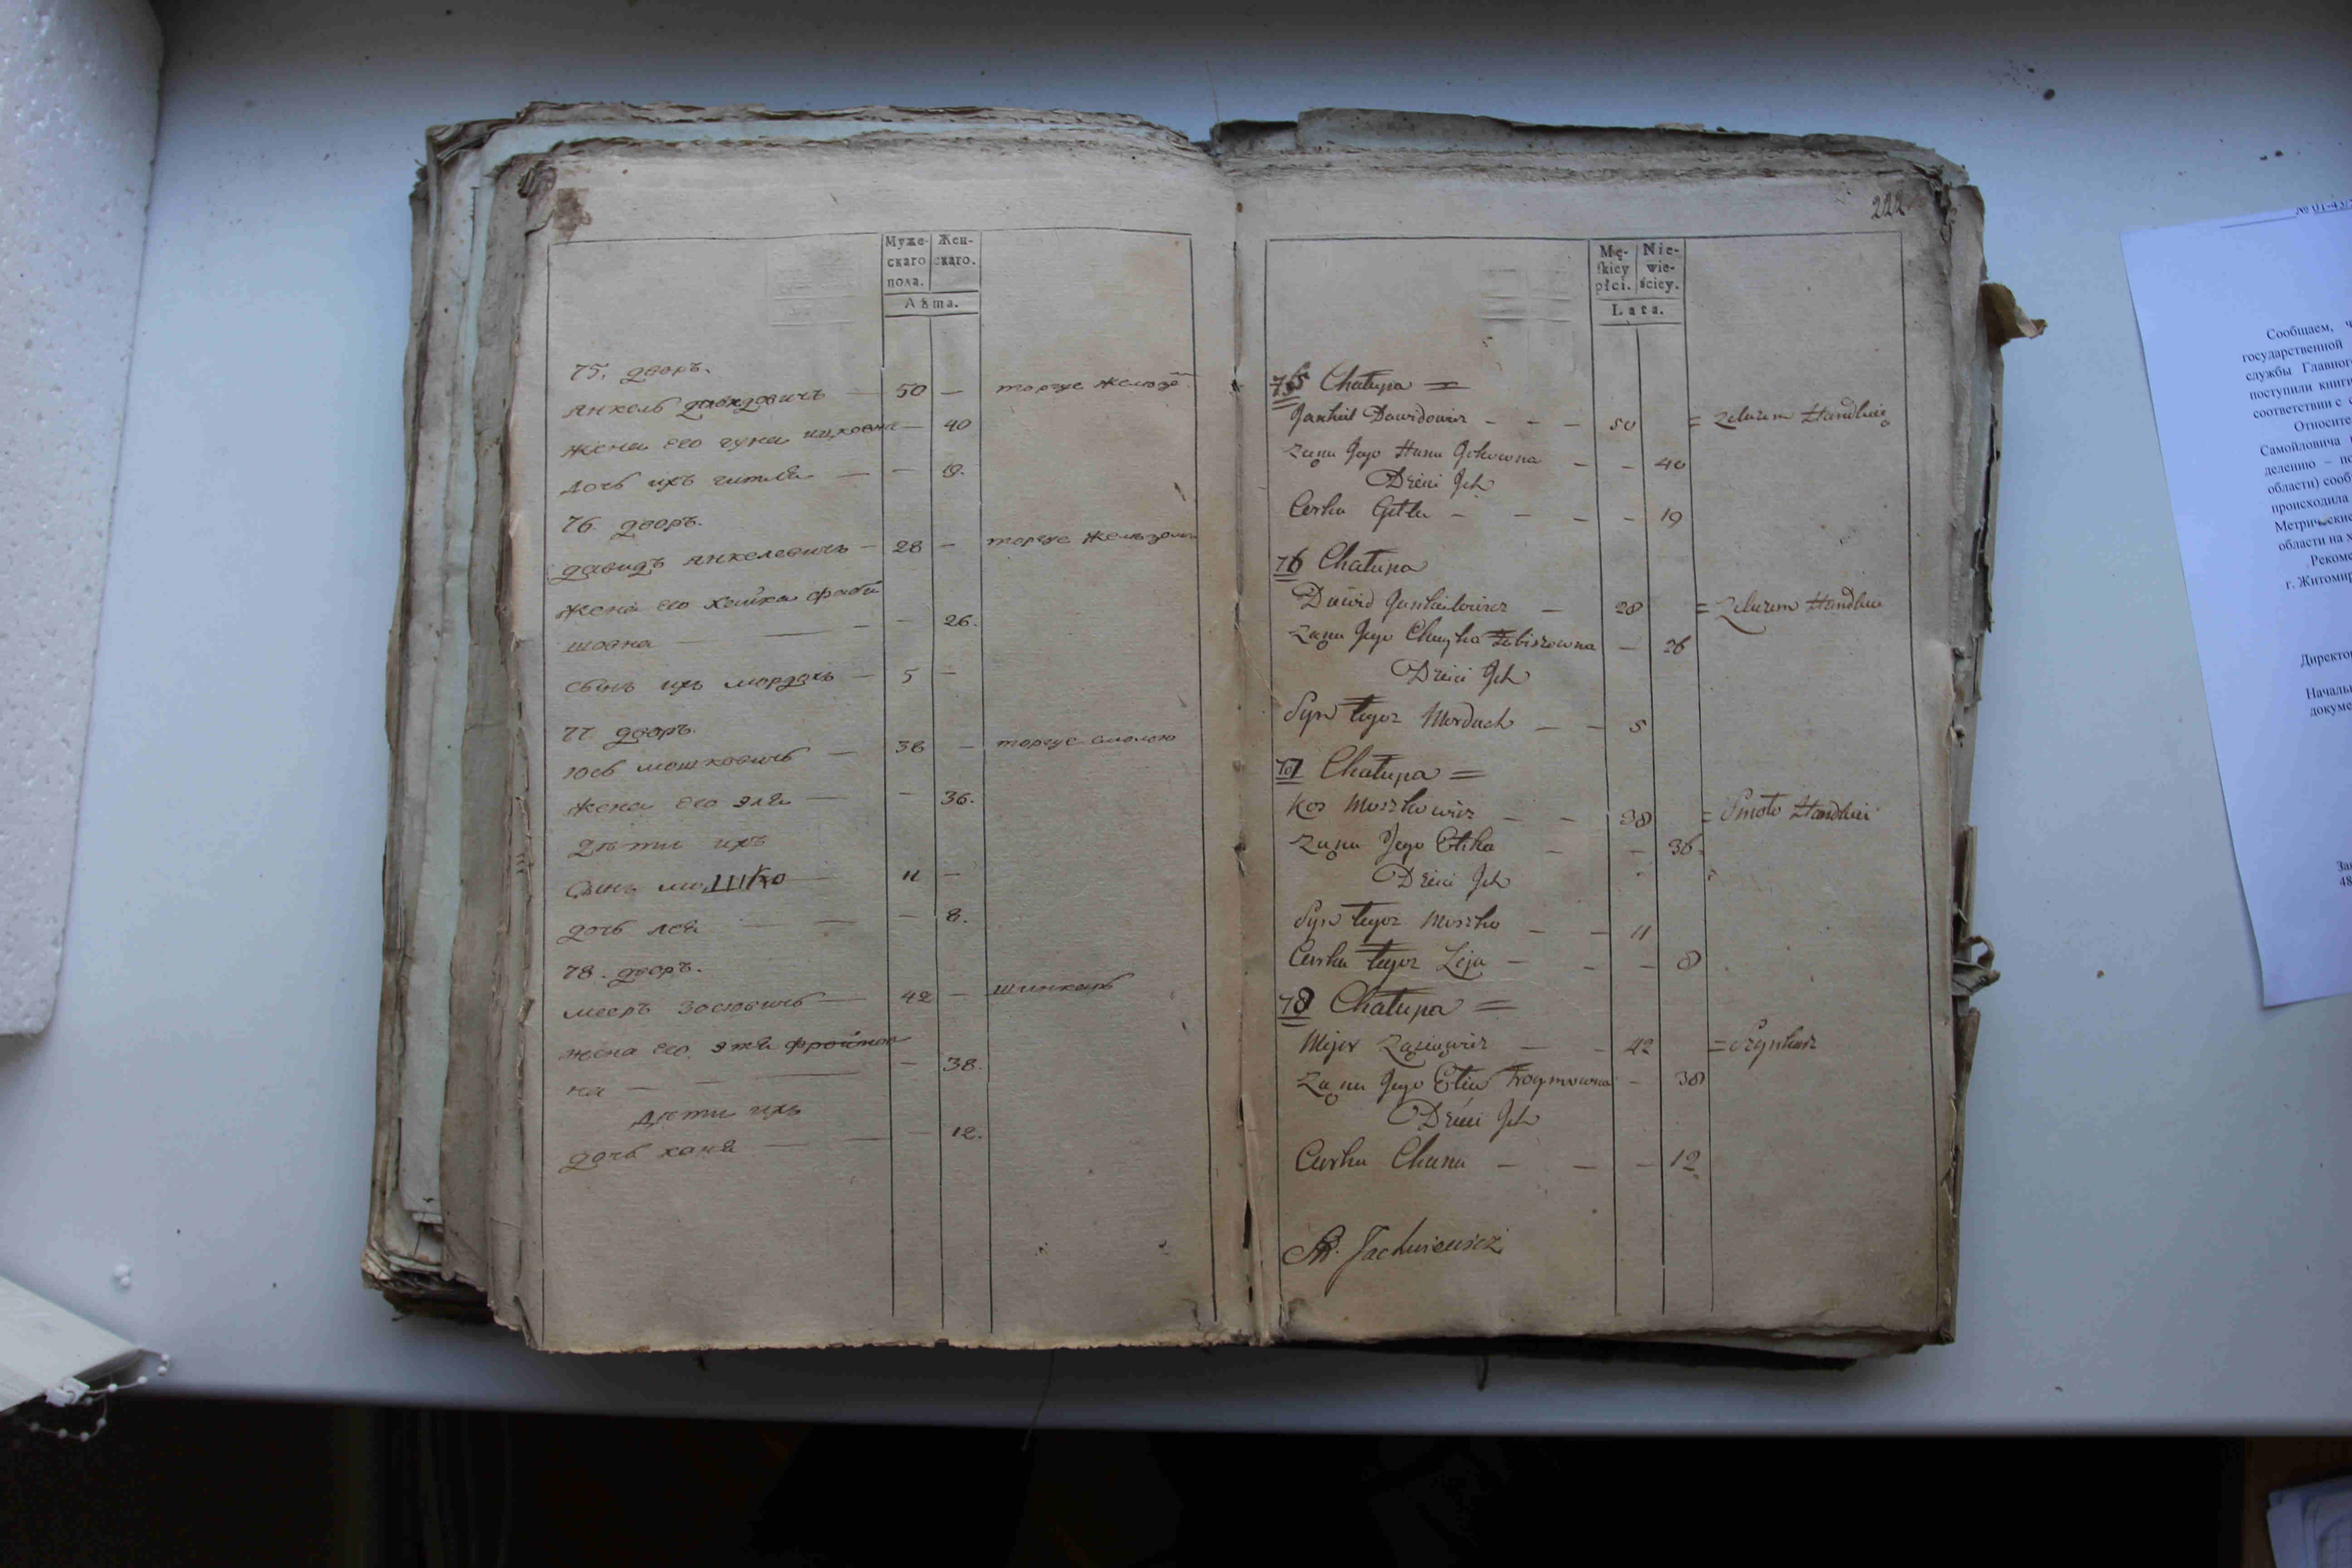 Муже-
скаго
пола.
Жен-
скаго.
Лѣта.
75. дворъ.
янкель давидовичъ — 50 — торгуе
жена его гуна ицковна — 40
дочь ихъ гитля — — 19.
76. дворъ.
давидъ янкелевичъ — 28 — торгуе железомъ
жена его хайка фаби
шовна — — — 26.
сынъ ихъ мордахъ — 5 —
77. дворъ.
юсь мошковичъ — 38 — торгуе смолою
жена его эля — — 36.
дѣти ихъ
сынъ мошко — 11 —
дочь лея — — — 8.
78. дворъ.
мееръ — 42 — шинкаръ
жена его этя фроимов
на — — — — 38.
дѣти ихъ
дочь ханя — — — 12.
222
Mę-
skiey
płci.
Nie-
wie-
ściey.
Lata.
75 Chałupa =
Jankiel Dawidowicz - - - 50 = Zelazem Handluie
Zona Jego Huna Ickowna - - 40
Dzieci Jch
Corka Gitla - - - - 19
76 Chałupa
Dawid Jankielowicz - 28 = Zelazem Handluie
Zona Jego Chayka Fabiszowna - 26
Dzieci Jch
Syn tegoz Morduch - - 5
77 Chałupa =
Moszkowicz - - 38 = Smoło Handluie
Zona Jego Elka - - 36.
Dzieci Jch
Syn tegoz Moszko - - 11
Corka tegoz Leja - - - 8
78 Chałupa =
Mejer - - 42 = Szynkarz
Zona Jego Etia Froymowna - 38
Dzieci Jch
Corka Chana - - - 12
Jachniewicz
№ 01-43/
Сообщаем, ч
государственной
службы Главног
поступили книги
соответствии с
Относите
Самойловича
делению – по
области) сооб
происходила
Метрические
области на х
Рекоме
г. Житомир
Директор
Начальн
докуме
48